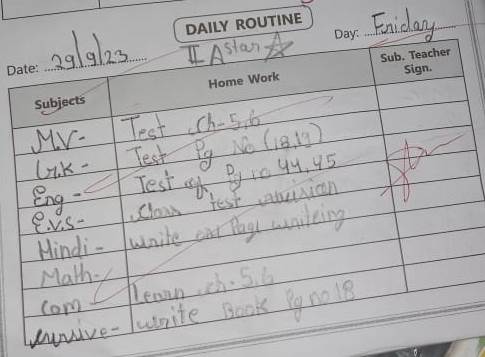 DAILY ROUTINE
II A Star
Date: 29/9/23 Day: Friday
Subjects Home Work Sub. Teacher Sign.
M.V- Test ch-5,6
G.K- Test Pg No (18,19)
Eng- Test of Pg no 44,45
E.V.S- Class test
Hindi- write one Page writeing
Math-
Com Learn ch-5,6
cursive- write Book Pg no 18